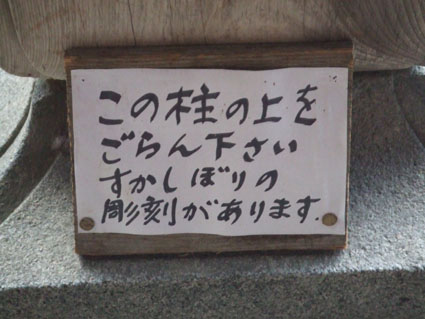 この柱の上を
ごらん下さい
すかしぼりの
彫刻があります.